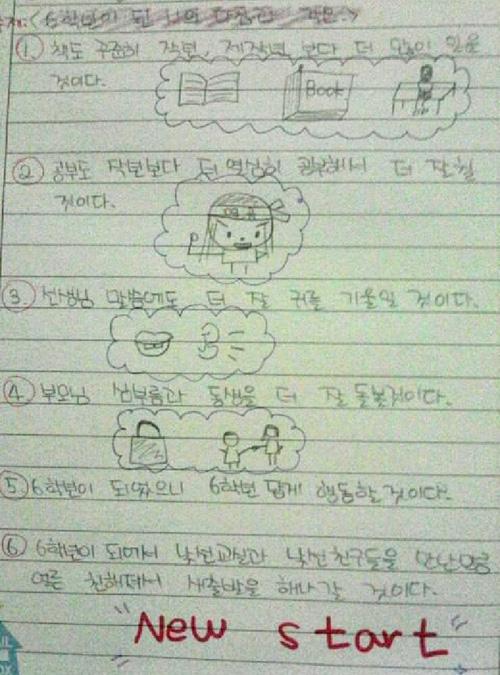 6학년이 된 나의 다짐과 각오.>
① 책도 꾸준히 작년, 재작년 보다 더 많이 읽을
것이다.
Book
② 공부도 작년보다 더 열심히 공부해서 더 잘할
것이다.
③ 선생님 말씀에도 더 잘 귀를 기울일 것이다.
④ 부모님 심부름과 동생을 더 잘 돌볼것이다.
⑤ 6학년이 되었으니 6학년 답게 행동할것이다.
⑥ 6학년이 되어서 낯선교실과 낯선친구들을 만난만큼
얼른 친해져서 새출발을 해나갈 것이다.
"New start"